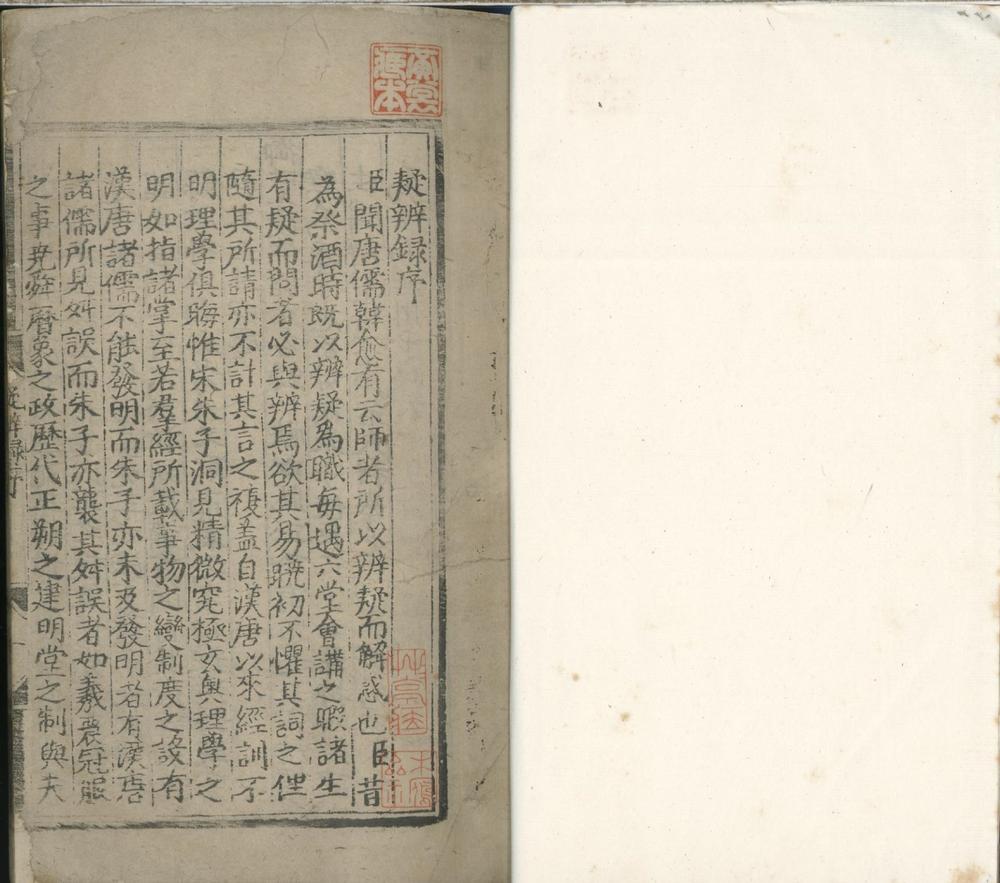 疑辨録序
臣聞唐儒韓愈有云師者所以辨疑而解惑也臣昔
為祭酒時既以辨疑為職每遇六堂會講之暇諸生
有疑而問者必與辨焉欲其易曉初不懼其詞之俚
隨其所請亦不計其言之複蓋自漢唐以來經訓不
明理學俱晦惟宋朱子洞見精微究極玄奥理學之
明如指諸掌至若羣經所載事物之變制度之設有
漢唐諸儒不能發明而朱子亦未及發明者有漢唐
諸儒所見舛誤而朱子亦襲其舛誤者如羲農冠服
之事堯舜曆象之政歷代正朔之建明堂之制與夫
疑辨録序